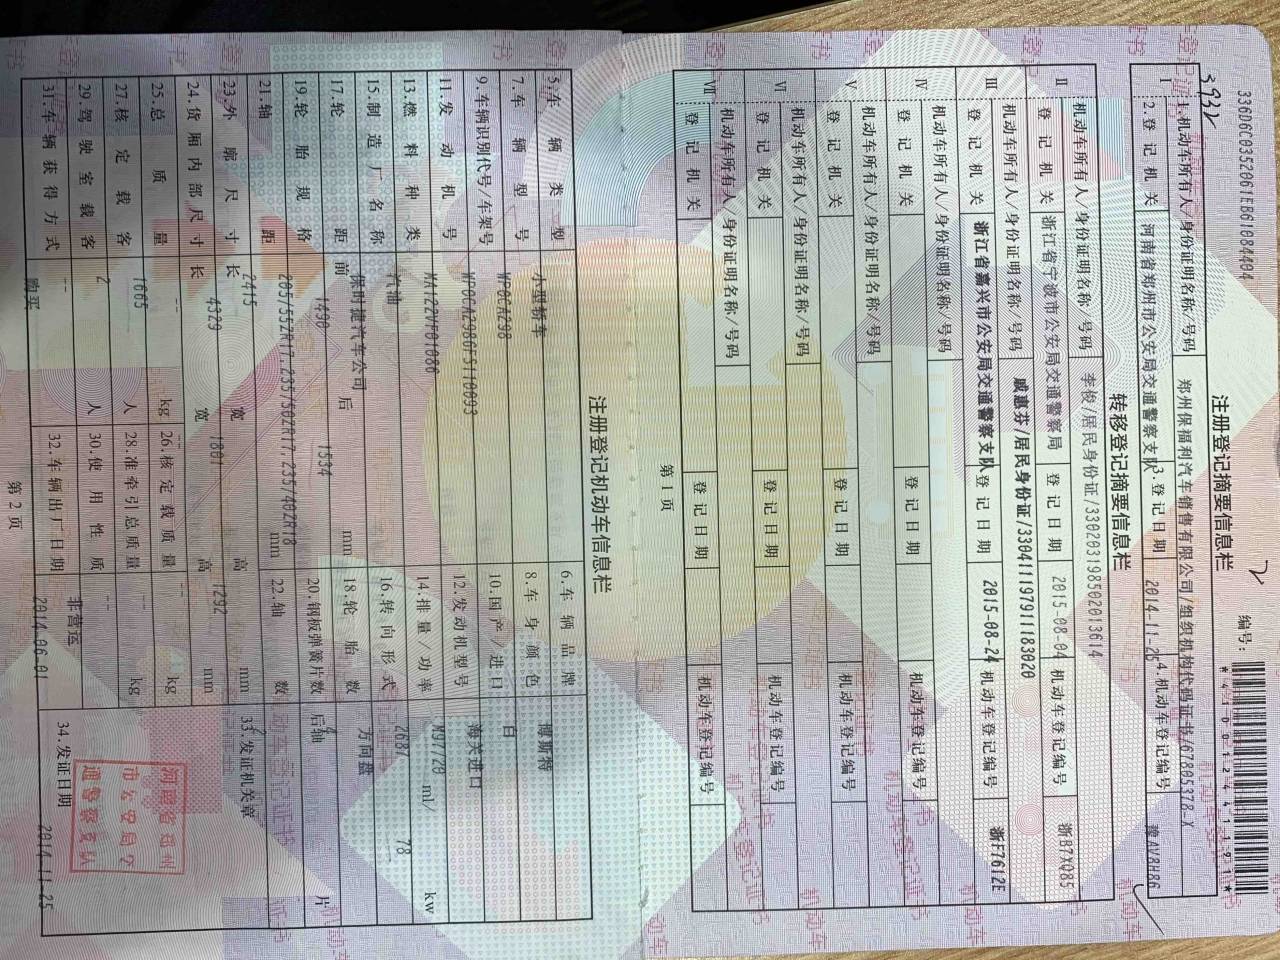 336D6C0352061EB61084404
3932
2
编号：
*410012441191*
注册登记摘要信息栏
I
1.机动车所有人/身份证明名称/号码
郑州保福利汽车销售有限公司/组织机构代码证书/67805378-X
2.登记机关
河南省郑州市公安局交通警察支队
3.登记日期
2014-11-25
4.机动车登记编号
豫AV8H86
转移登记摘要信息栏
II
机动车所有人/身份证明名称/号码
李俊/居民身份证/330203198502013614
登记机关
浙江省宁波市公安局交通警察局
登记日期
2015-08-04
机动车登记编号
浙B7XQ85
III
机动车所有人/身份证明名称/号码
戚惠芬/居民身份证/330411197911183020
登记机关
浙江省嘉兴市公安局交通警察支队
登记日期
2015-08-24
机动车登记编号
浙F7612E
IV
机动车所有人/身份证明名称/号码
登记机关
登记日期
机动车登记编号
V
机动车所有人/身份证明名称/号码
登记机关
登记日期
机动车登记编号
VI
机动车所有人/身份证明名称/号码
登记机关
登记日期
机动车登记编号
VII
机动车所有人/身份证明名称/号码
登记机关
登记日期
机动车登记编号
第1页
注册登记机动车信息栏
5.车辆类型
小型轿车
6.车辆品牌
博斯特
7.车辆型号
WP0CA298
8.车身颜色
白
9.车辆识别代号/车架号
WP0CA298GFS110093
10.国产/进口
海关进口
11.发动机号
MA122VF01086
12.发动机型号
M9720
13.燃料种类
汽油
14.排量/功率
2687 ml/ 78 kw
15.制造厂名称
保时捷汽车公司
16.转向形式
方向盘
17.轮距
前 1490 后 1534 mm
18.轮胎数
4
19.轮胎规格
205/55ZR17,235/50ZR17,235/40ZR18
20.钢板弹簧片数
后轴 片
21.轴距
2415 mm
22.轴数
2
23.外廓尺寸
长 4329 宽 1801 高 1292 mm
33.发证机关章
24.货厢内部尺寸
长 -- 宽 -- 高 -- mm
25.总质量
1665 kg
26.核定载质量
-- kg
27.核定载客
2 人
28.准牵引总质量
-- kg
29.驾驶室载客
-- 人
30.使用性质
非营运
31.车辆获得方式
购买
32.车辆出厂日期
2014-06-01
34.发证日期
2014-11-25
河南省郑州
市公安局交
通警察支队
第2页